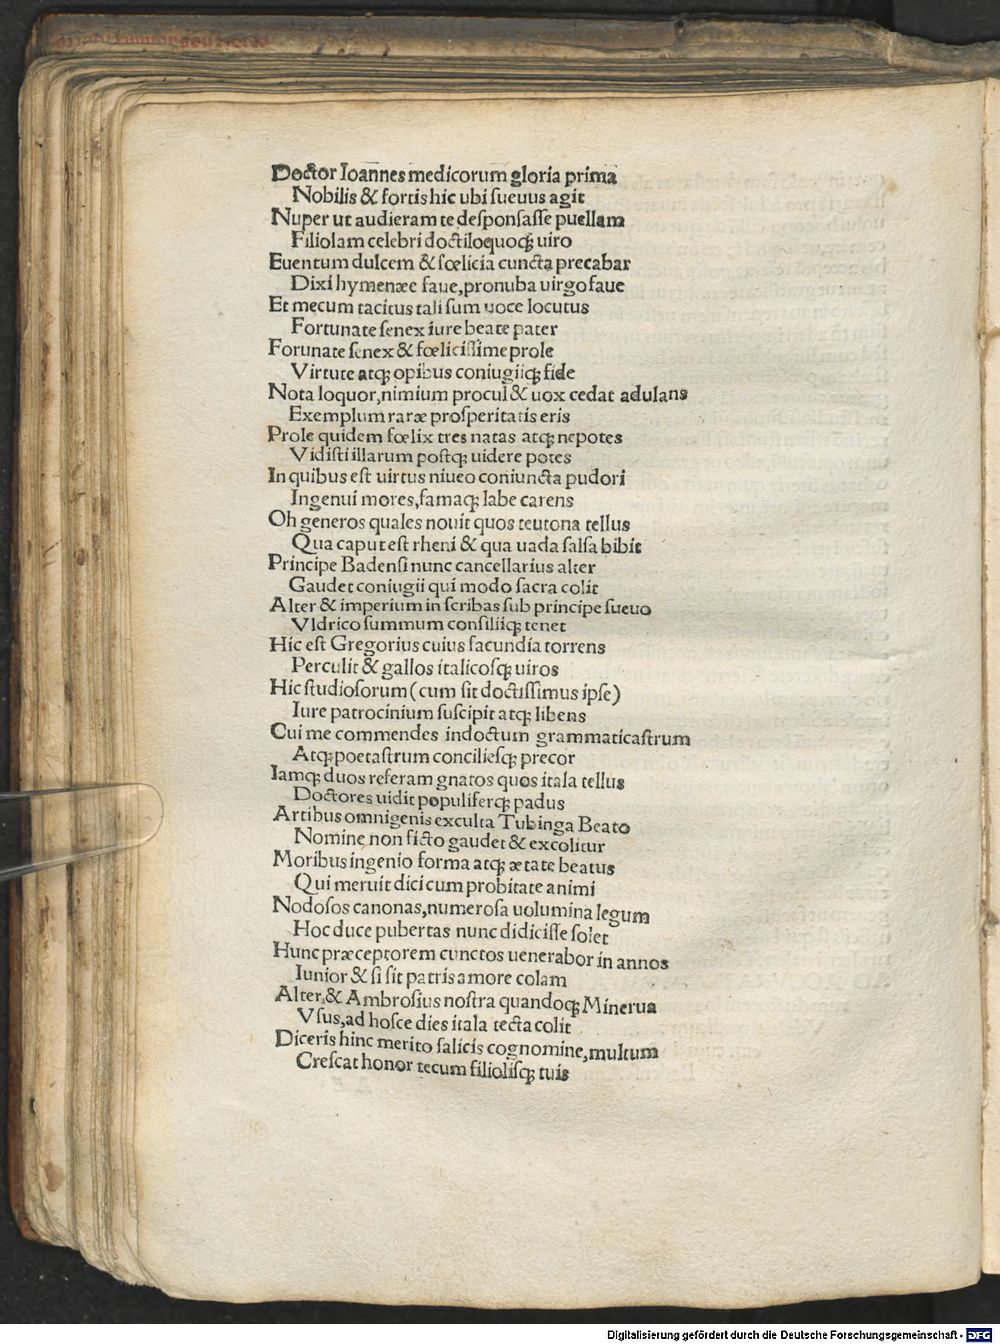 Doctor Ioannes medicorum gloria prima
Nobilis & fortis hic ubi sueuus agit
Nuper ut audieram te desponsasse puellam
Filiolam celebri doctiloquoq; uiro
Euentum dulcem & fœlicia cuncta precabar
Dixi hymenæe faue, pronuba uirgo faue
Et mecum tacitus tali sum uoce locutus
Fortunate senex iure beate pater
Forunate senex & fœlicissime prole
Virtute atq; opibus coniugiiq; fide
Nota loquor, nimium procul & uox cedat adulans
Exemplum raræ prosperitatis eris
Prole quidem fœlix tres natas atq; nepotes
Vidisti illarum postq; uidere potes
In quibus est uirtus niueo coniuncta pudori
Ingenui mores, famaq; labe carens
Oh generos quales nouit quos teutona tellus
Qua caput est rheni & qua uada salsa bibit
Principe Badensi nunc cancellarius alter
Gaudet coniugii qui modo sacra colit
Alter & imperium in scribas sub principe sueuo
Vldrico summum consiliiq; tenet
Hic est Gregorius cuius facundia torrens
Perculit & gallos italicosq; uiros
Hic studiosorum (cum sit doctissimus ipse)
Iure patrocinium suscipit atq; libens
Cui me commendes indoctum grammaticastrum
Atq; poetastrum conciliesq; precor
Iamq; duos referam gnatos quos itala tellus
Doctores uidit populiferq; padus
Artibus omnigenis exculta Tubinga Beato
Nomine non ficto gaudet & excolitur
Moribus ingenio forma atq; ætate beatus
Qui meruit dici cum probitate animi
Nodosos canonas, numerosa uolumina legum
Hoc duce pubertas nunc didicisse solet
Hunc præceptorem cunctos uenerabor in annos
Iunior & si sit patris amore colam
Alter & Ambrosius nostra quandoq; Minerua
Vsus, ad hosce dies itala tecta colit
Diceris hinc merito salicis cognomine, multum
Crescat honor tecum filiolisq; tuis
Digitalisierung gefördert durch die Deutsche Forschungsgemeinschaft - DFG